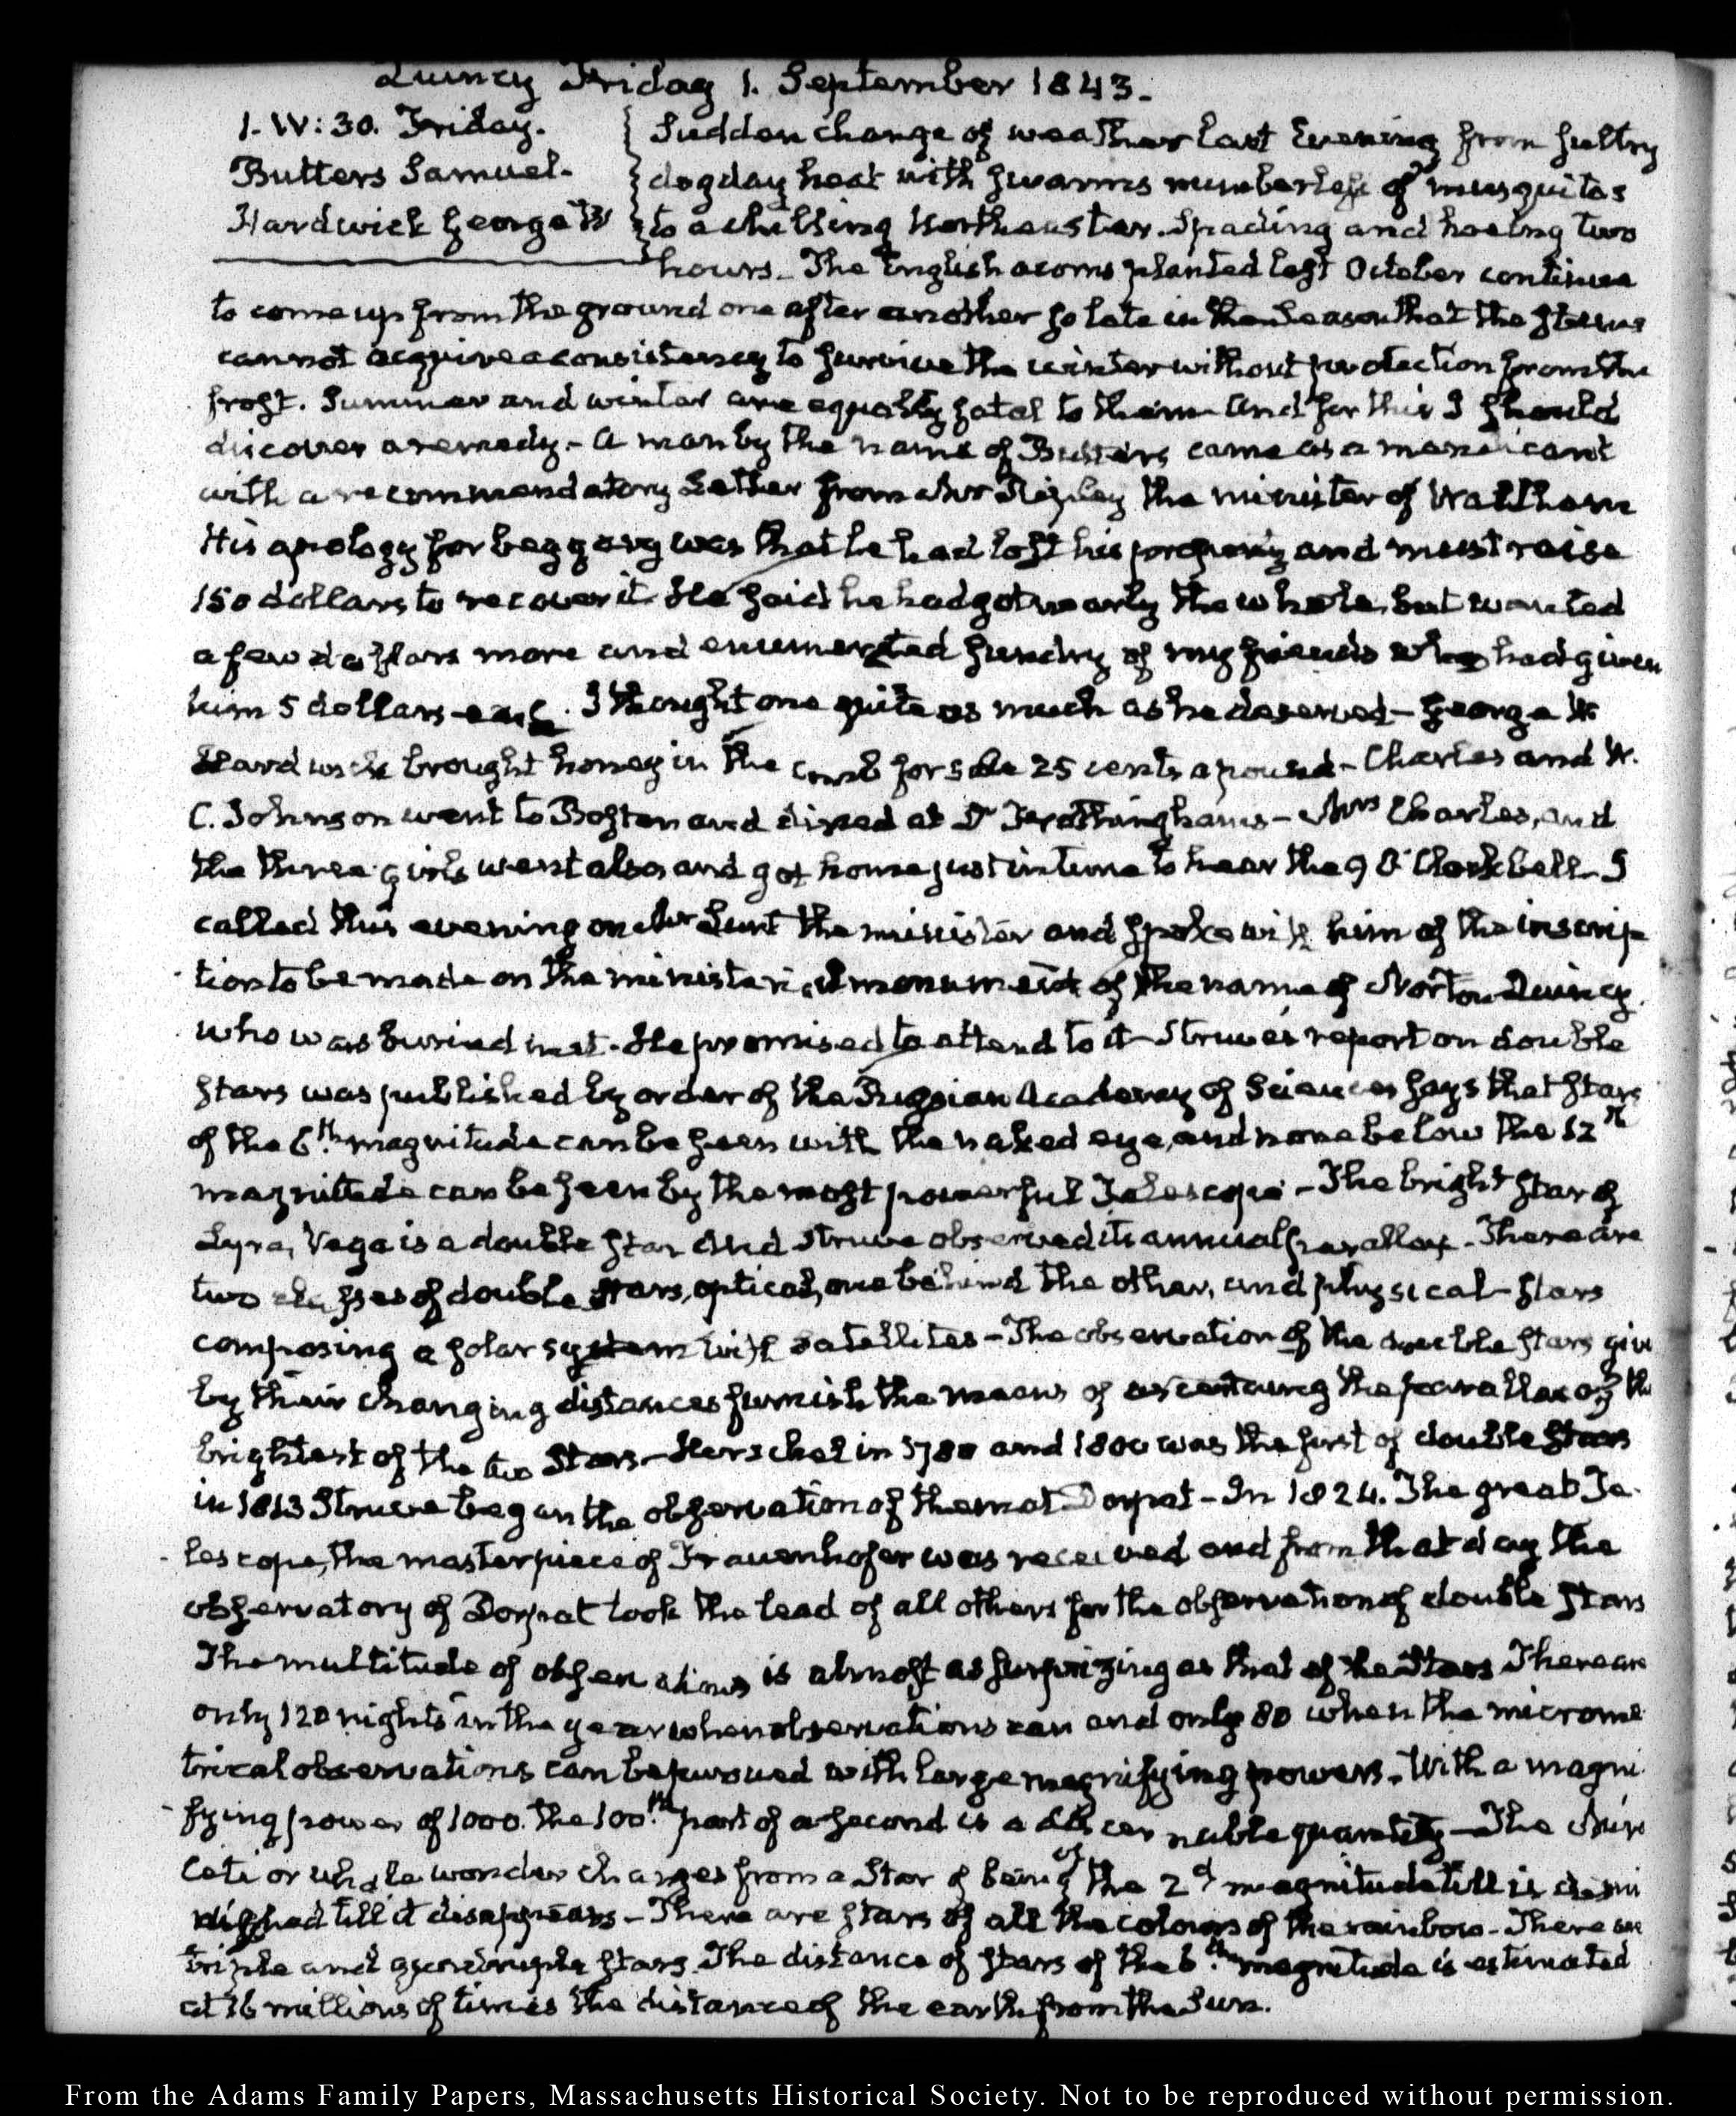 Quincy Friday 1. September 1843.
1. IV:30. Friday.
Butters Samuel.
Hardwick George W
Sudden change of weather last Evening from sultry
dogday heat with swarms numberless of musquitos
to a chilling Northeaster. Spading and hoeing two
hours. The English acorns planted last October continue
to come up from the ground one after another so late in the Season that the stems
cannot acquire a consistency to survive the winter without protection from the
frost. Summer and winter are equally fatal to them and for this I should
discover a remedy.- A man by the name of Butters came as a mendicant
with a recommendatory Letter from Mr Ripley the minister of Waltham
His apology for beggary was that he had lost his property and must raise
150 dollars to recover it. He said he had got nearly the whole, but wanted
a few dollars more and enumerated sundry of my friends who had given
him 5 dollars each. I thought one quite as much as he deserved- George W
Hardwick brought honey in the comb for sale 25 cents a pound- Charles and W.
C. Johnson went to Boston and dined at Dr Frothinghams- Mrs Charles, and
the three girls went also, and got home just in time to hear the 9 O'Clock bell- I
called this evening on Mr Lunt the minister and spoke with him of the inscrip
tion to be made on the ministerial monument of the name of Norton Quincy
who was buried in it. He promised to attend to it- Struve's report on double
stars was published by order of the Russian Academy of Sciences says that stars
of the 6th magnitude can be seen with the naked eye, and none below the 12th
magnitude can be seen by the most powerful Telescope- The bright star of
Lyra, Vega is a double star and Struve observed its annual parallax- There are
two classes of double stars, optical, one behind the other, and physical- stars
composing a solar system with satellites- The observation of the double stars give
by their changing distances furnish the means of ascertaining the parallax of the
brightest of the two Stars- Herschel in 1780 and 1800 was the first of double stars
in 1813 Struve began the observation of them at Dorpat- In 1824. The great Te
lescope, the masterpiece of Frauenhofer was received and from that day the
observatory of Dorpat took the lead of all others for the observation of double stars
The multitude of observations is almost as surprizing as that of the Stars There are
only 120 nights in the year when observations can and only 80 when the microme
trical observations can be pursued with large magnifying powers. With a magni
fying power of 1000. the 100th part of a second is a discernable quantity- The
Ceti or whale wonder changes from a Star of being of the 2d magnitude till is dimi
nished till it disappears- There are stars of all the colours of the rainbow- There are
triple and quadruple stars. The distance of stars of the 6th magnitude is estimated
at 76 millions of times the distance of the earth from the Sun.
From the Adams Family Papers, Massachusetts Historical Society. Not to be reproduced without permission.